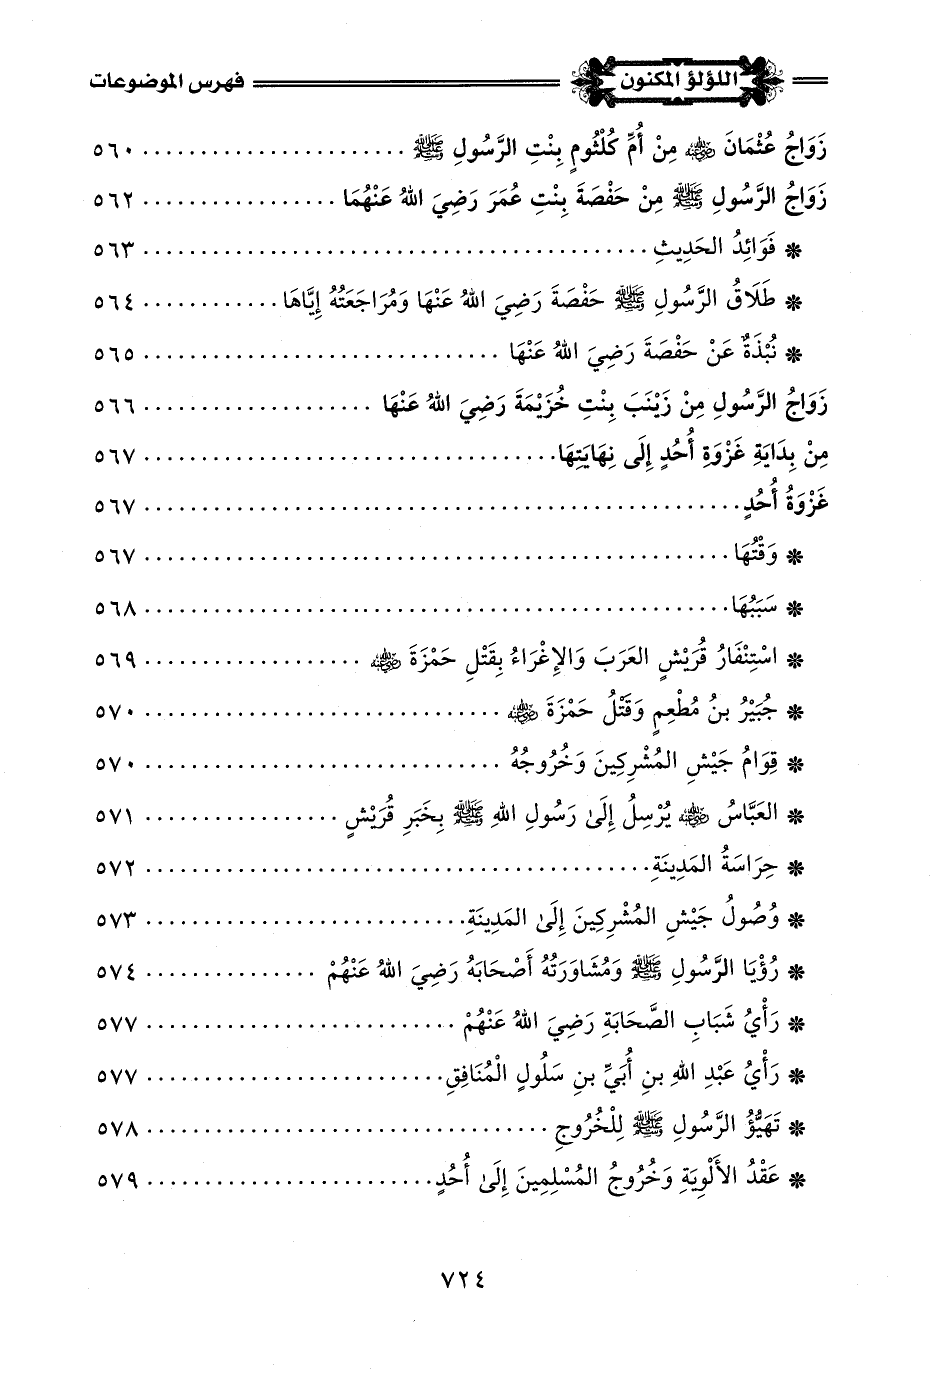 اللؤلؤ المكنون فهرس الموضوعات
زَوَاجُ عُثْمَانَ رضي الله عنه مِنْ أُمِّ كُلْثُومٍ بِنْتِ الرَّسُولِ ﷺ ........................ ٥٦٠
زَوَاجُ الرَّسُولِ ﷺ مِنْ حَفْصَةَ بِنْتِ عُمَرَ رَضِيَ اللهُ عَنْهُمَا ................. ٥٦٢
* فَوَائِدُ الحَدِيثِ ............................................ ٥٦٣
* طَلَاقُ الرَّسُولِ ﷺ حَفْصَةَ رَضِيَ اللهُ عَنْهَا وَمُرَاجَعَتُهُ إِيَّاهَا ............ ٥٦٤
* نُبْذَةٌ عَنْ حَفْصَةَ رَضِيَ اللهُ عَنْهَا ............................... ٥٦٥
زَوَاجُ الرَّسُولِ مِنْ زَيْنَبَ بِنْتِ خُزَيْمَةَ رَضِيَ اللهُ عَنْهَا .................... ٥٦٦
مِنْ بِدَايَةِ غَزْوَةِ أُحُدٍ إِلَى نِهَايَتِهَا .................................... ٥٦٧
غَزْوَةُ أُحُدٍ .................................................... ٥٦٧
* وَقْتُهَا ................................................... ٥٦٧
* سَبَبُهَا ................................................... ٥٦٨
* اسْتِنْفَارُ قُرَيْشٍ العَرَبَ وَالإِغْرَاءُ بِقَتْلِ حَمْزَةَ رضي الله عنه ................... ٥٦٩
* جُبَيْرُ بنُ مُطْعِمٍ وَقَتْلُ حَمْزَةَ رضي الله عنه ............................... ٥٧٠
* قِوَامُ جَيْشِ المُشْرِكِينَ وَخُرُوجُهُ ............................... ٥٧٠
* العَبَّاسُ رضي الله عنه يُرْسِلُ إِلَىٰ رَسُولِ اللهِ ﷺ بِخَبَرِ قُرَيْشٍ ................. ٥٧١
* حِرَاسَةُ المَدِينَةِ ............................................ ٥٧٢
* وُصُولُ جَيْشِ المُشْرِكِينَ إِلَىٰ المَدِينَةِ ............................ ٥٧٣
* رُؤْيَا الرَّسُولِ ﷺ وَمُشَاوَرَتُهُ أَصْحَابَهُ رَضِيَ اللهُ عَنْهُمْ ............... ٥٧٤
* رَأْيُ شَبَابِ الصَّحَابَةِ رَضِيَ اللهُ عَنْهُمْ ........................... ٥٧٧
* رَأْيُ عَبْدِ اللهِ بنِ أُبَيِّ بنِ سَلُولٍ الْمُنَافِقِ .......................... ٥٧٧
* تَهَيُّؤُ الرَّسُولِ ﷺ لِلْخُرُوجِ ................................... ٥٧٨
* عَقْدُ الأَلْوِيَةِ وَخُرُوجُ المُسْلِمِينَ إِلَىٰ أُحُدٍ ......................... ٥٧٩
٧٢٤